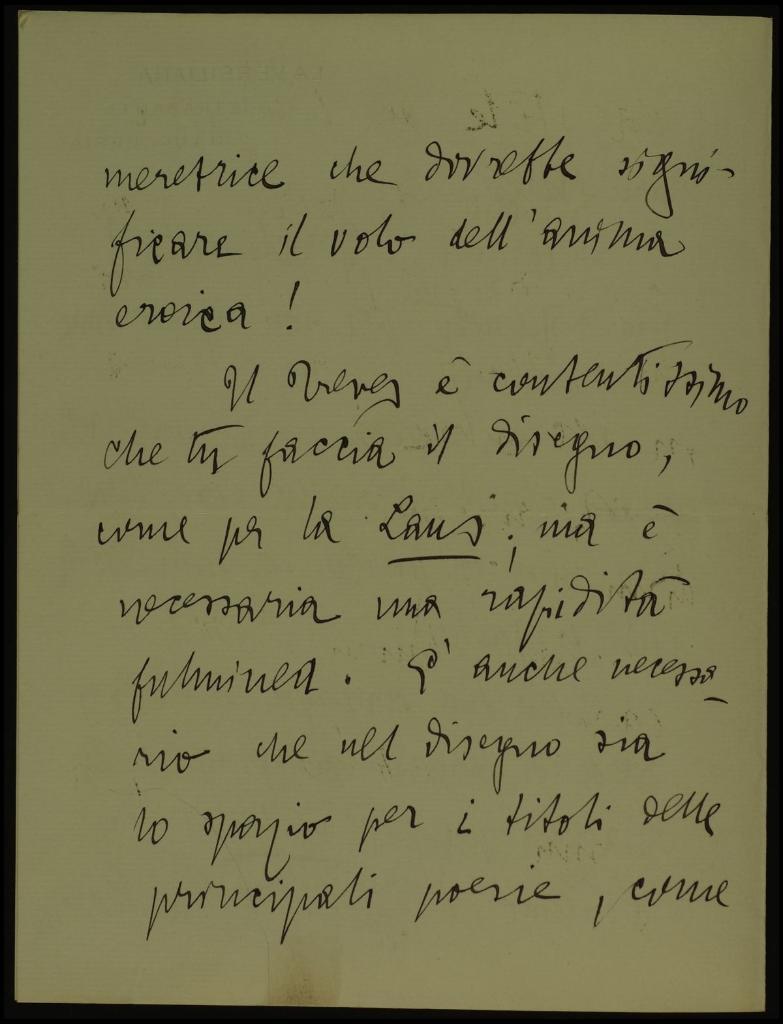 meretrice che dovrebbe signi-
ficare il volo dell'anima
eroica!
Il Treves è contentissimo
che tu faccia il disegno,
come per la Laus; ma è
necessaria una rapidità
fulminea. È anche necessa-
rio che nel disegno sia
lo spazio per i titoli delle
principali poesie, come